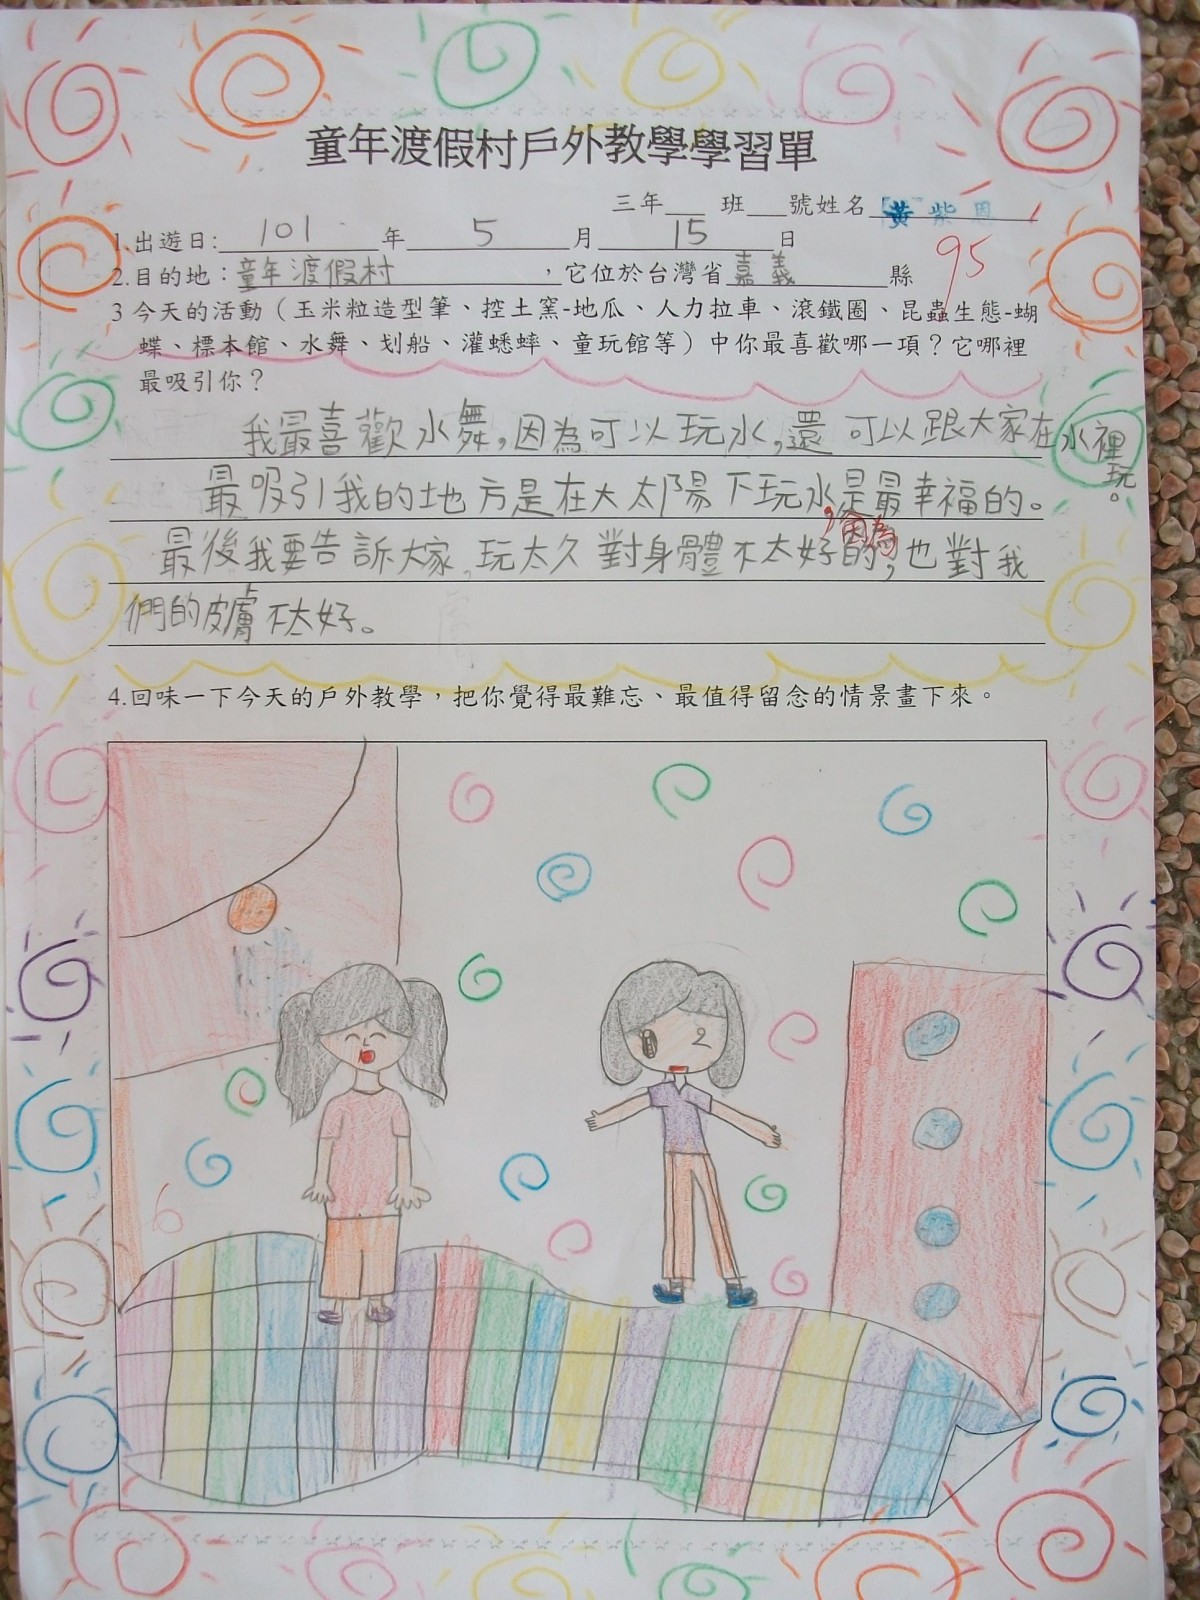 童年渡假村戶外教學學習單
三年 班 號姓名 黃紫恩
1.出遊日: 101 年 5 月 15 日
95
2.目的地：童年渡假村 ，它位於台灣省 嘉義 縣
3 今天的活動（玉米粒造型筆、控土窯-地瓜、人力拉車、滾鐵圈、昆蟲生態-蝴
蝶、標本館、水舞、划船、灌蟋蟀、童玩館等）中你最喜歡哪一項？它哪裡
最吸引你？
我最喜歡水舞，因為可以玩水，還可以跟大家在水裡玩。
最吸引我的地方是在大太陽下玩水，是最幸福的。
因為
最後我要告訴大家，玩太久對身體不太好的，也對我
們的皮膚不太好。
4.回味一下今天的戶外教學，把你覺得最難忘、最值得留念的情景畫下來。